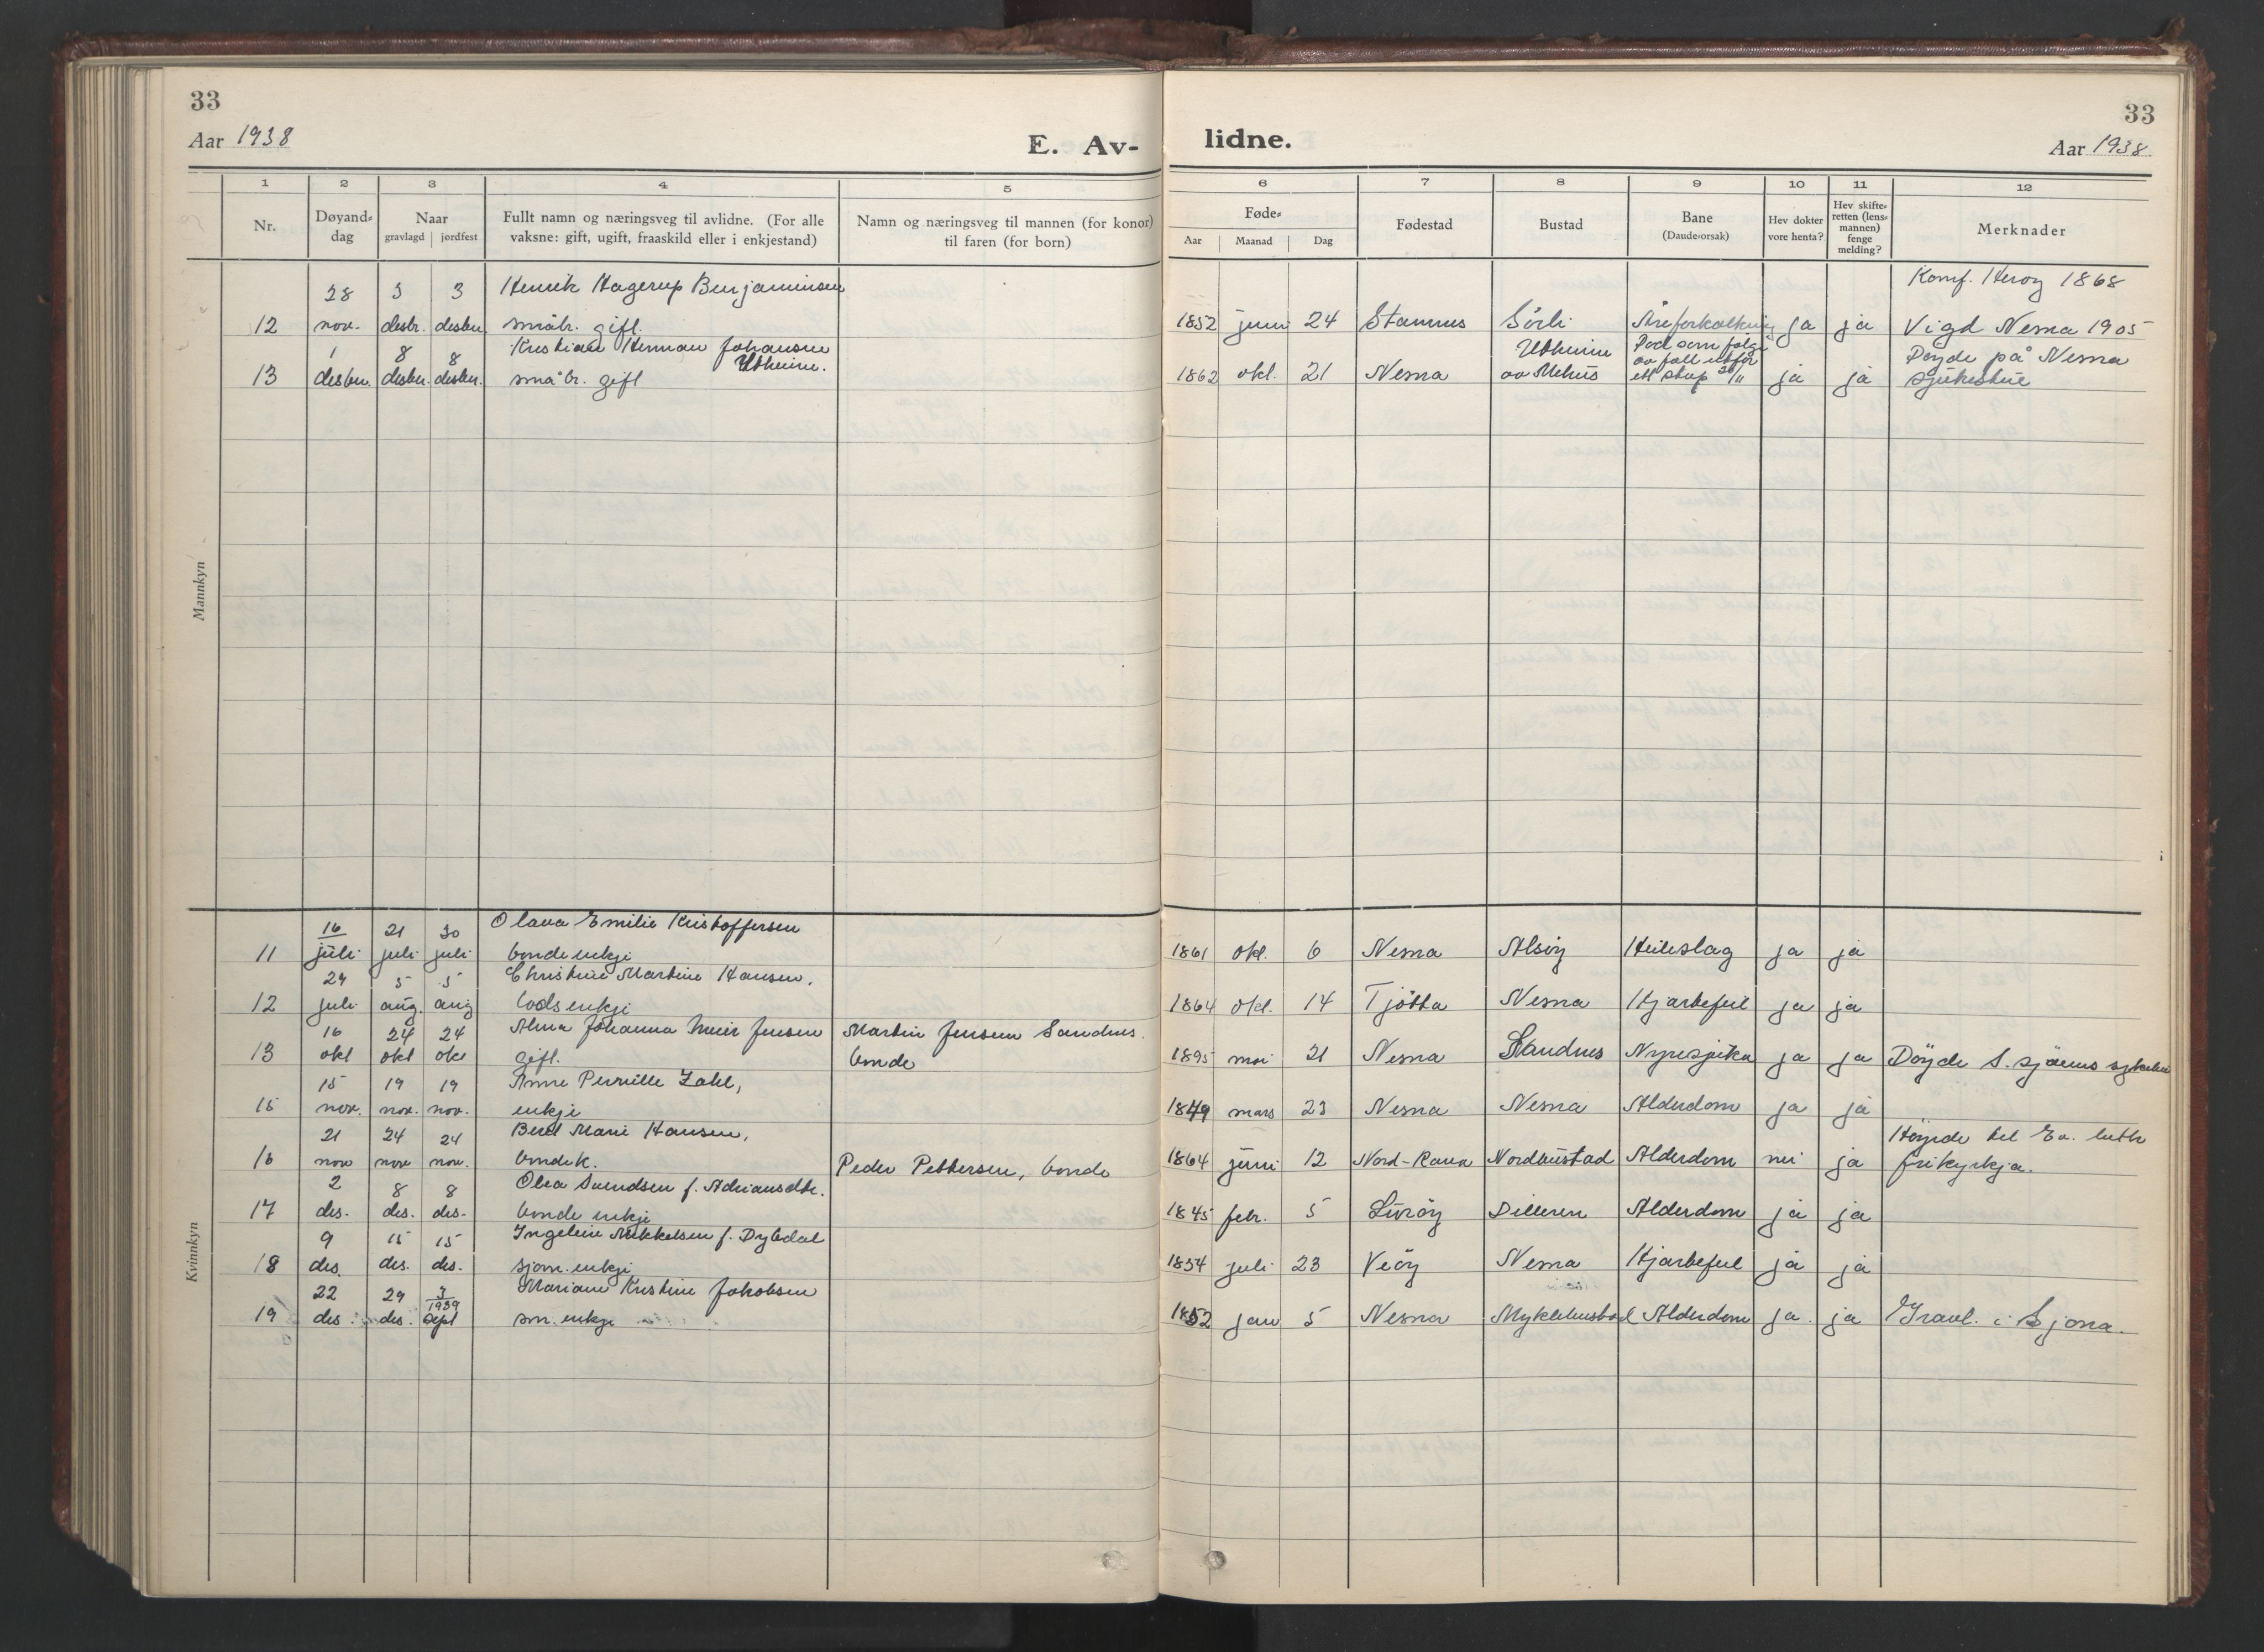 33
33
Aar 1938
E. Av-
lidne.
Aar 1938
1 2 3 4 5 6 7 8 9 10 11 12
Nr.
Døyand-
dag
Naar
gravlagd jordfest
Fullt namn og næringsveg til avlidne. (For alle
vaksne: gift, ugift, fraaskild eller i enkjestand)
Namn og næringsveg til mannen (for konor)
til faren (for born)
Føde-
Aar Maanad Dag
Fødestad
Bustad
Bane
(Daude-orsak)
Hev dokter
vore henta?
Hev skifte-
retten (lens-
mannen)
fenge
melding?
Merknader
Mannkyn
28 3 3 Henrik Hagerup Benjaminsen Konf. Herøy 1868
12 nov. desbr. desbr. småbr. gift. 1852 juni 24 Stamnes Sörli Åreforkalkning ja ja Vigd Nesna 1905
1 8 8 Kristian Herman Johansen Utheim Död som følge
Utheim. av fall utfor Döyde på Nesna
13 desbr. desbr. desbr. småbr. gift 1862 okt. 21 Nesna av Mehus ett stup 30/11 ja ja sjukestue
Kvinnkyn
16 21 30 Olava Emilie Kristoffersen
11 juli juli juli bondeenkje 1861 okt. 6 Nesna Alsöy Heileslag ja ja
29 5 5 Christine Martine Hansen,
12 juli aug. aug lodsenkje 1864 okt. 14 Tjötta Nesna Hjartefeil ja ja
16 24 24 Alma Johanna Jensen Martin Jensen Sandnes.
13 okt okt okt gift. bonde 1895 mai 21 Nesna Sandnes Nyresjuka ja ja Döyde S. sjöens sykehus
15 19 19 Anne Pernille Zahl,
15 nov. nov. nov. enkje 1849 mars 23 Nesna Nesna Alderdom ja ja
21 24 24 Berit Marie Hansen, Höyrde til Ev. luth
16 nov nov nov. bondek. Peder Pettersen, bonde 1864 juni 12 Nord-Rana Nordbustad Alderdom nei ja frikyrkja.
2 8 8 Olea Svendsen f. Adriansdtr.
17 des. des. des. bonde enkje 1845 febr. 5 Luröy Dilleren Alderdom ja ja
9 15 15 Ingeleiv Mikkelsen f. Dybdal
18 des. des. des. sjöm. enkje 1854 juli 23 Veöy Nesna Hjartefeil ja ja
22 29 3 Mariane Kristine Jakobsen
1939
19 des. des. Sept sm. enkje 1852 jan 5 Nesna Myklebustad Alderdom ja. ja Gravl. i Sjona.